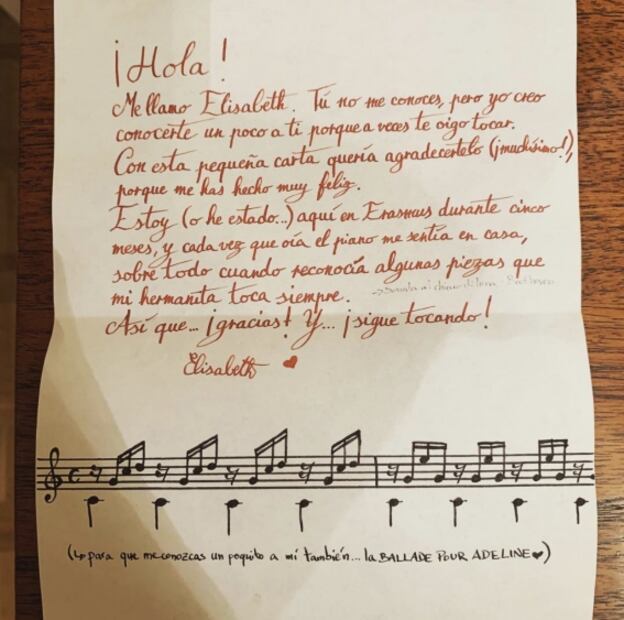 ¡Hola!
Me llamo Elisabeth. Tú no me conoces, pero yo creo
conocerte un poco a ti porque a veces te oigo tocar.
Con esta pequeña carta quería agradecértelo (¡muchísimo!),
porque me has hecho muy feliz.
Estoy (o he estado...) aquí en Erasmus durante cinco
meses, y cada vez que oía el piano me sentía en casa,
sobre todo cuando reconocía algunas piezas que
mi hermanita toca siempre.
Así que... ¡gracias! Y... ¡sigue tocando!
Elisabeth ♥
(↳ para que me conozcas un poquito a mí también... la BALLADE POUR ADELINE ♥)